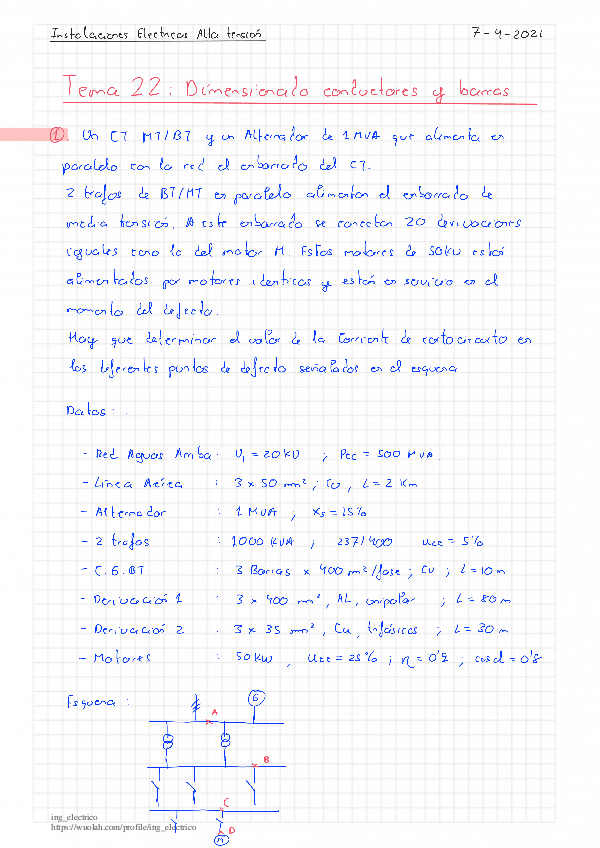 Instalaciones Electricas Alta tensión
7-4-2021
Tema 22: Dimensionado conductores y barras
① . Un CT MT/BT y un Alternador de 1 MVA que alimenta en
paralelo con la red el enbarrado del CT.
2 trafos de BT/MT en paralelo alimentan el enbarrado de
media tensión. A este enbarrado se conectan 20 derivaciones
iguales como la del motor M. Estos motores de 50KW están
alimentados por motores identicos y están en servicio en el
momento del defecto.
Hay que determinar el valor de la Corriente de cortocircuito en
los diferentes puntos de defecto señalados en el esquema
Datos: .
- Red Aguas Arriba : U₁ = 20 KV ; Pcc = 500 MVA.
- Línea Aérea : 3 x 50 mm² ; Cu , L = 2 Km
- Alternador : 1 MVA ; Xs = 15%
- 2 trafos : 1000 KVA ; 237/400 Ucc = 5%
- C.G.BT : 3 Barras x 400 mm²/fase ; CU ; L = 10 m
- Derivación 1 : 3 x 400 mm² , AL, unipolar ; L = 80 m
- Derivación 2 : 3 x 35 mm² , Cu, trifásicos ; L = 30 m
- Motores : 50 KW , Ucc = 25% ; η = 0'9 ; cos d = 0'8
Esquema :
G
A
B
C
D
M
ing_electrico
https://wuolah.com/profile/ing_electrico